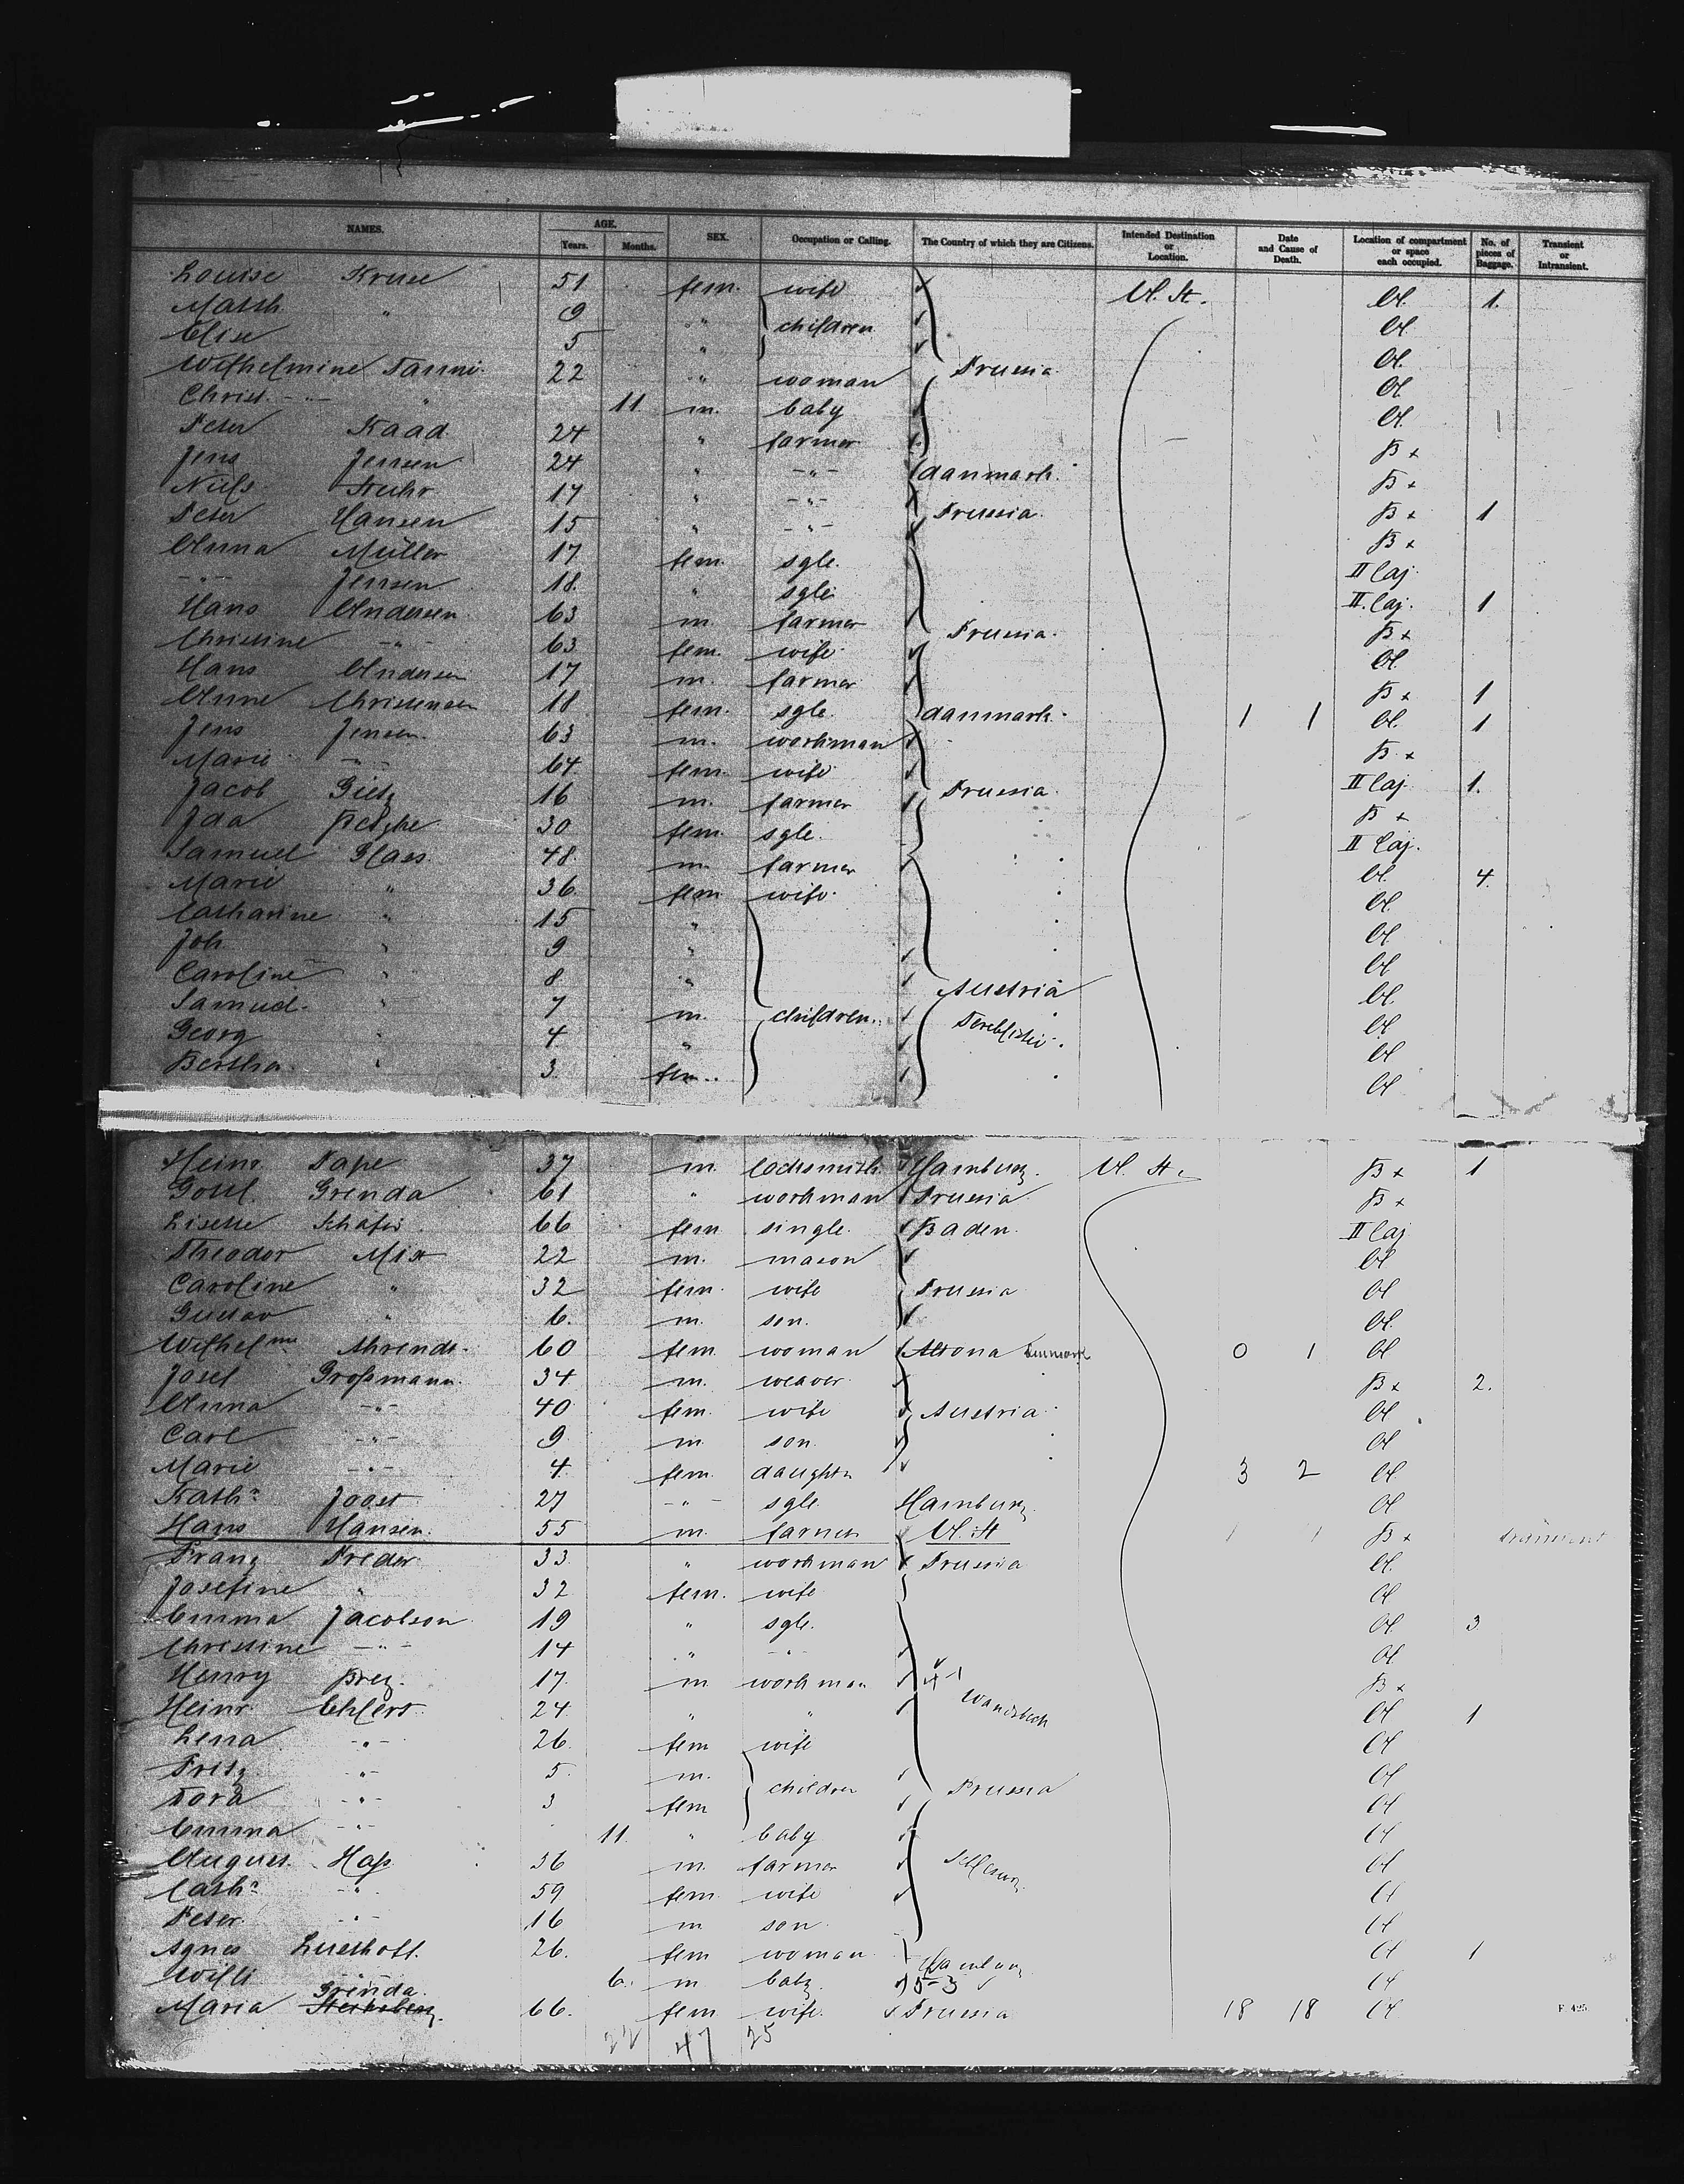 NAMES. AGE. Years. Months. SEX. Occupation or Calling. The Country of which they are Citizens. Intended Destination or Location. Date and Cause of Death. Location of compartment or space each occupied. No. of pieces of Baggage. Transient or Intransient.
Louise Kruse 51 fem. wife U. St. A. 1.
Math. " 9 " children A.
Elise 5 " A.
Wilhelmine 22 " woman Prussia A.
Christ. -"- " 11 m. baby A.
Peter Kaad 24 " farmer B x
Jens Jensen 24 " -"- danmark B x
Niels Stuhr 17 " -"- Prussia B x 1
Peter Hansen 15 " -"- B x
Anna Müller 17 fem. sgle. II Caj.
-"- Jensen 18 " sgle. II. Caj. 1
Hans Andersen 63 m. farmer Prussia B x
Christine -"- 63 fem. wife A.
Hans Andersen 17 m. farmer B x 1
Anne Christensen 18 fem. sgle. danmark 1 1 A. 1
Jens Jensen 63 m. workman B x
Marie -"- 64 fem. wife II Caj. 1.
Jacob 16 m. farmer Prussia B x
Ida 30 fem. sgle. II Caj.
Samuel Glass 48 m. farmer A. 4.
Marie " 36 fem wife A.
Catharine " 15 " A
Joh. " 9 " A
Caroline " 8 " Austria A.
Samuel " 7 m. children A
Georg " 4 " A
Bertha " 3 fem. A
Heinr. Pape 37 m. locksmith Hamburg U. St. B x 1
Gottl. Grenda 61 " workman Prussia B x
Lisette Schäfer 66 fem single Baden II Caj
Theodor Mix 22 m. mason A
Caroline " 32 fem. wife Prussia A
Gustav " 6 m. son. A.
Wilhelmne Ahrends 60 fem woman Altona 0 1 A
Josef Großmann 34 m. weaver B x 2.
Anna -"- 40 fem. wife Austria A
Carl -"- 9 m son. A
Marie -"- 4 fem. daughtr 3 2 A
Kathr. Joost 27 -"- sgle Hamburg A
Hans Hansen 55 m. farmer U. St B x transient
Franz Preder 33 " workman Prussia A.
Josefine " 32 fem. wife A
Emma Jacobson 19 " sgle. A 3
Christine -"- 14 " -"- A
Henry Brey 17 m workman B x
Heinr Ehlers 24 " " Wandsbeck A 1
Lena -"- 26 fem wife A
Fritz -"- 5 m. children Prussia A
Dora -"- 3 fem A
Emma -"- 11 " baby A
August Haß 36 m. farmer A
Cathr. -"- 59 fem. wife A
Peter -"- 16 m son A
Agnes 26. fem woman Hamburg A 1
Willi 6. m baby 5-3 A
Grenda
Maria 66. fem wife Prussia 18 18 A
F 425
22 47 25